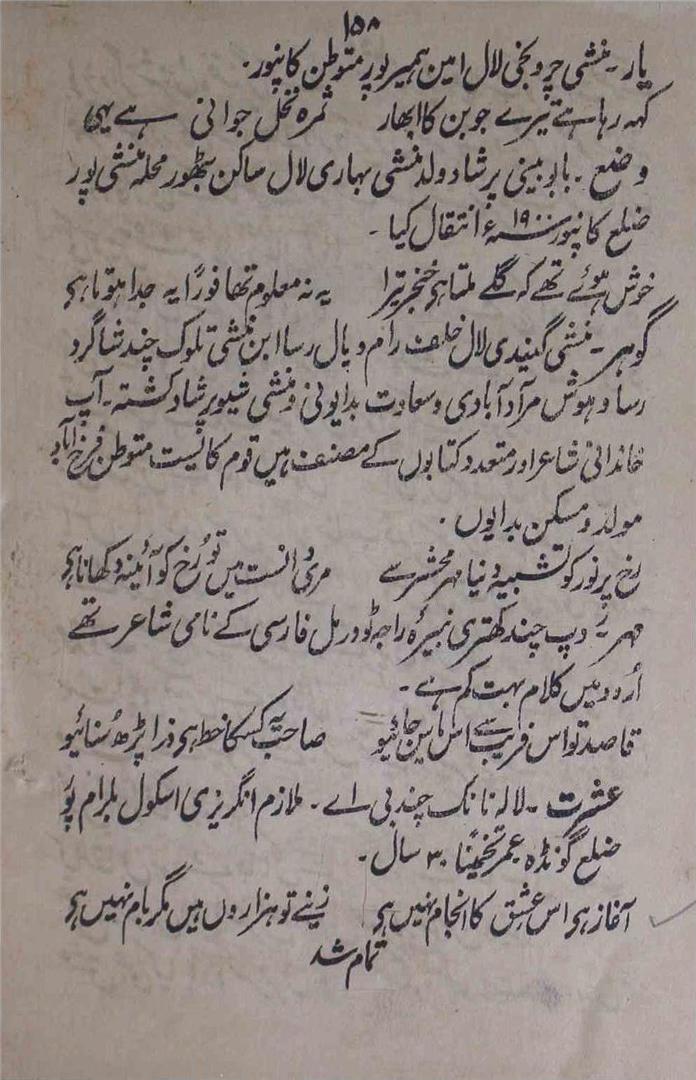 ۱۵۸
یار۔ منشی چرونجی لال امین ہمیرپور متوطن کانپور۔
کہہ رہا ہے تیرے جوبن کا ابھار ثمرہ نخل جوانی ہے یہی
وضع۔ بابو بینی پرشاد ولد منشی بہاری لال ساکن بٹھور محلہ منشی پور
ضلع کانپور سنہ ۱۹۰۰ء انتقال کیا۔
خوش ہوئے تھے کہ گلے ملتا ہی خنجر تیرا یہ نہ معلوم تھا فورًا یہ جدا ہوتا ہی
گوہر۔ منشی گیندی لال خلف رام دیال رسا ابن منشی تلوک چند شاگرد
رسا و ہوش مرادآبادی و سعادت بدایونی و منشی شیو پرشاد کشتہ۔ آپ
خاندانی شاعر اور متعدد کتابوں کے مصنف ہیں قوم کائست متوطن فرخ آباد
مولد و مسکن بدایوں۔
رخ پرنور کو تشبیہ دینا مہر محشر سے مری دانست میں تو رُخ کو آئینہ دکھانا ہی
مہر۔ روپ چند کھتری نبیرۂ راجہ ٹوڈرمل فارسی کے نامی شاعر تھے
اُردو میں کلام بہت کم ہے۔
قاصد تو اس فریب سے اس پاس جائیو صاحب یہ کسکا خط ہی ذرا پڑھ سُنائیو
عشرت۔ لالہ نانک چند بی اے۔ ملازم انگریزی اسکول بلرام پور
ضلع گونڈہ عمر تخمینًا ۳۰ سال۔
آغاز ہی اس عشق کا انجام نہیں ہی زینے تو ہزاروں ہیں مگر بام نہیں ہی
تمام شد